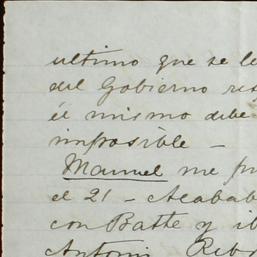 ultimo que se le
del Gobierno res
él mismo debe
imposible —
Manuel me
el 21 — Acabab
con Batte y ib
Antonio Ribo